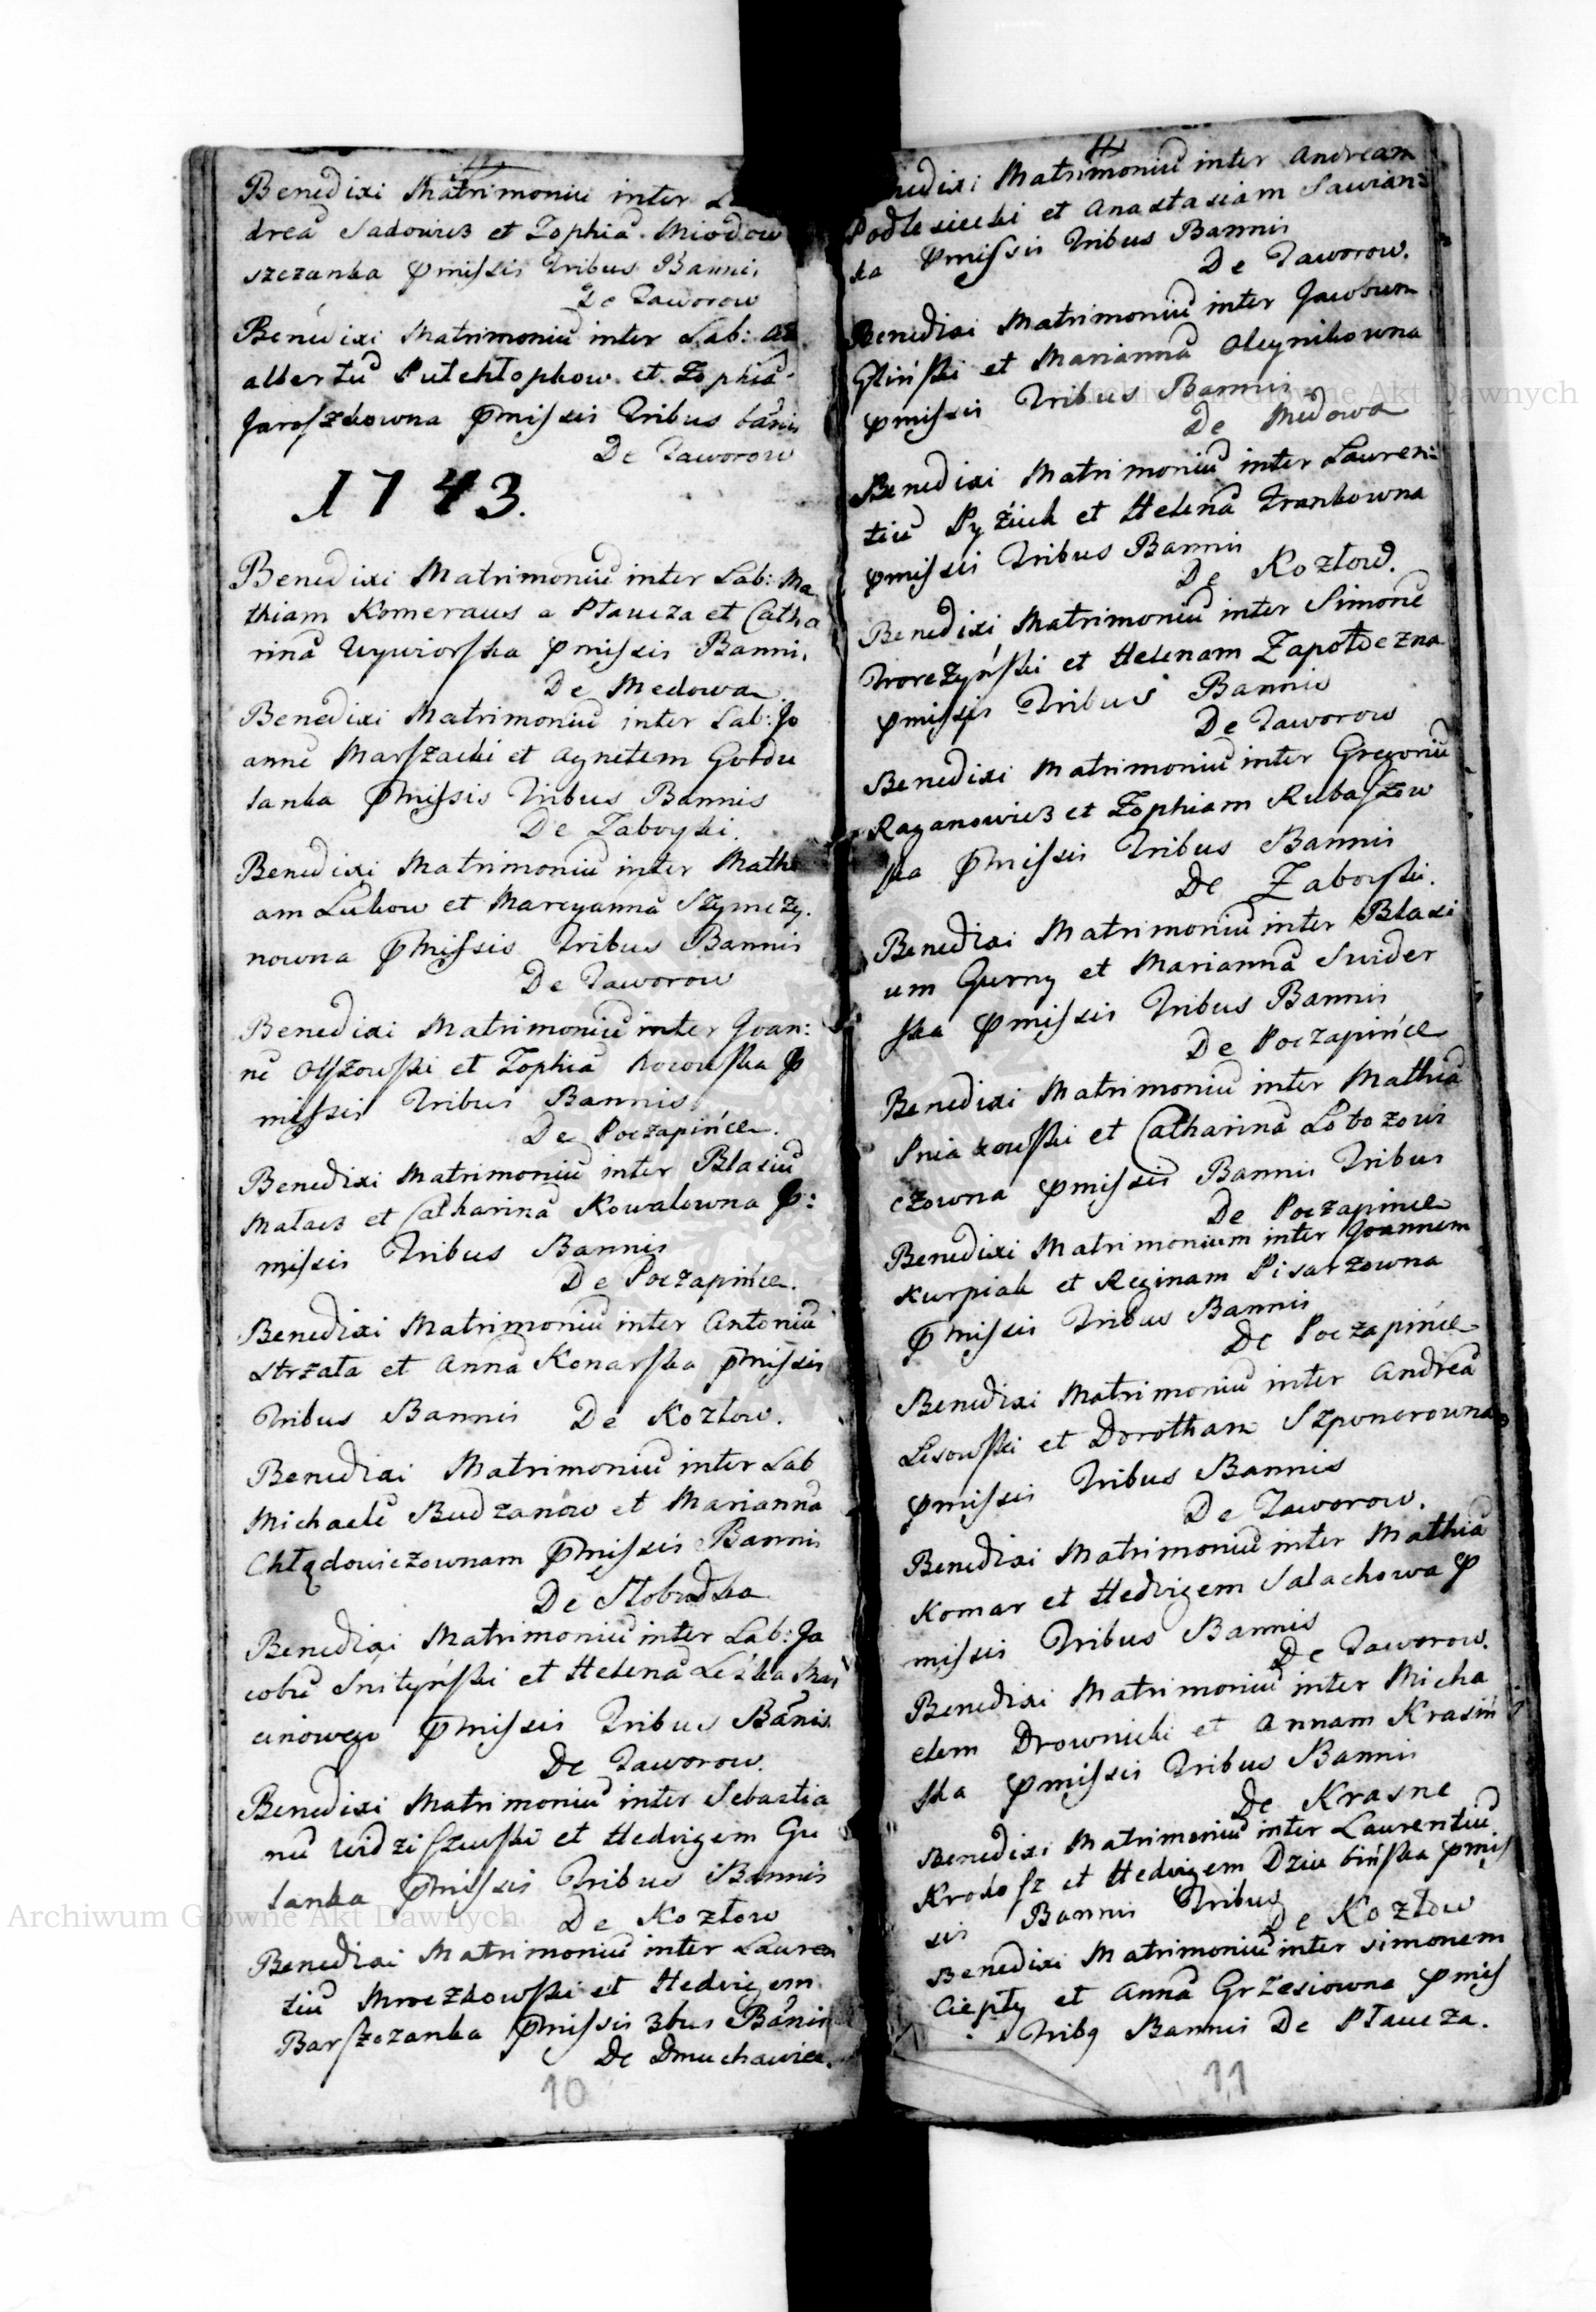 Benedixi Matrimoniũ inter
dreã Sadowicz et Zophiã Miodow
szczanka p̃missis Tribus Bannis
De Taworow
Benedixi Matrimoniũ inter Lab: Ad
albertũ Putchlopkow et Zophiã
Jaroszkowna p̃missis Tribus bãnis
De Taworow
1743.
Benedixi Matrimoniũ inter Lab: Ma
thiam Komeraus a Plaucza et Catha
rinã Uywiorska p̃missis Bannis
De Medowa
Benedixi Matrimoniũ inter Lab: Jo
annẽ Marszacki et Agnetem Goldu
lanka p̃missis Tribus Bannis
De Zaboyki.
Benedixi Matrimoniũ inter Mathi
am Lukow et Maryannã Szymczy
nowna p̃missis Tribus Bannis
De Taworow
Benedixi Matrimoniũ inter Joan:
nẽ Olszowski et Zophiã Rocowska p̃
missis Tribus Bannis
De Poczapińce.
Benedixi Matrimoniũ inter Blasiũ
Matacz et Catharinã Kowalowna p̃:
missis Tribus Bannis
De Poczapińce.
Benedixi Matrimoniũ inter Antoniũ
Strzala et Annã Konarska p̃missis
Tribus Bannis De Kozłow.
Benedixi Matrimoniũ inter Lab
Michaelẽ Budzanow et Mariannã
Chłędowiczownam p̃missis Bannis
De Słobudka
Benedixi Matrimoniũ inter Lab: Ja
cobũ Snityński et Helenã Leśka Mar
cinowey p̃missis Tribus Bãnis
De Taworow.
Benedixi Matrimoniũ inter Sebastia
nũ Widziszewski et Hedvigem Gu
lanka p̃missis Tribus Bannis
De Kozłow
Benedixi Matrimoniũ inter Lauren
tiũ Mroczkowski et Hedvigem
Barszczanka p̃missis 3bus Bãnis
De Dmuchawiec.
10
Benedixi Matrimoniũ inter Andream
Podlesiecki et Anastasiam Sawian:
ka p̃missis Tribus Bannis
De Taworow.
Benedixi Matrimoniũ inter Jacobum
Gliński et Mariannã Oleynikowna
p̃missis Tribus Bannis
De Medowa
Benedixi Matrimoniũ inter Lauren:
tiũ Pyżiuk et Helenã Frankowna
p̃missis Tribus Bannis
De Kozłow.
Benedixi Matrimoniũ inter Simonẽ
Troczyński et Helenam Zapołoczna
p̃missis Tribus Bannis
De Taworow
Benedixi Matrimoniũ inter Gregoriũ
Raganowicz et Zophiam Rubaszew
ska p̃missis Tribus Bannis
De Zaboyki.
Benedixi Matrimoniũ inter Blasi
um Gurny et Mariannã Swider
ska p̃missis Tribus Bannis
De Poczapińce
Benedixi Matrimoniũ inter Mathiã
Pniakowski et Catharinã Lotozowi
czowna p̃missis Bannis Tribus
De Poczapince
Benedixi Matrimonium inter Joannem
Kurpiak et Reginam Pisarzowna
p̃missis Tribus Bannis
De Poczapińce
Benedixi Matrimoniũ inter Andreã
Lesowski et Dorotham Szponarowna
p̃missis Tribus Bannis
De Taworow.
Benedixi Matrimoniũ inter Mathiã
Komar et Hedvigem Salachowa p̃
missis Tribus Bannis
De Taworow.
Benedixi Matrimoniũ inter Micha
elem Drownicki et Annam Krasiń
ska p̃missis Tribus Bannis
De Krasne
Benedixi Matrimoniũ inter Laurentiũ
Krokosz et Hedvigem Dziubińska p̃mis
sis Bannis Tribus
De Kozłow
Benedixi Matrimoniũ inter Simonem
Ciepły et Annã Grzesiowna p̃mis
Tribq Bannis De Płaucza.
11
Archiwum Główne Akt Dawnych
Archiwum Główne Akt Dawnych